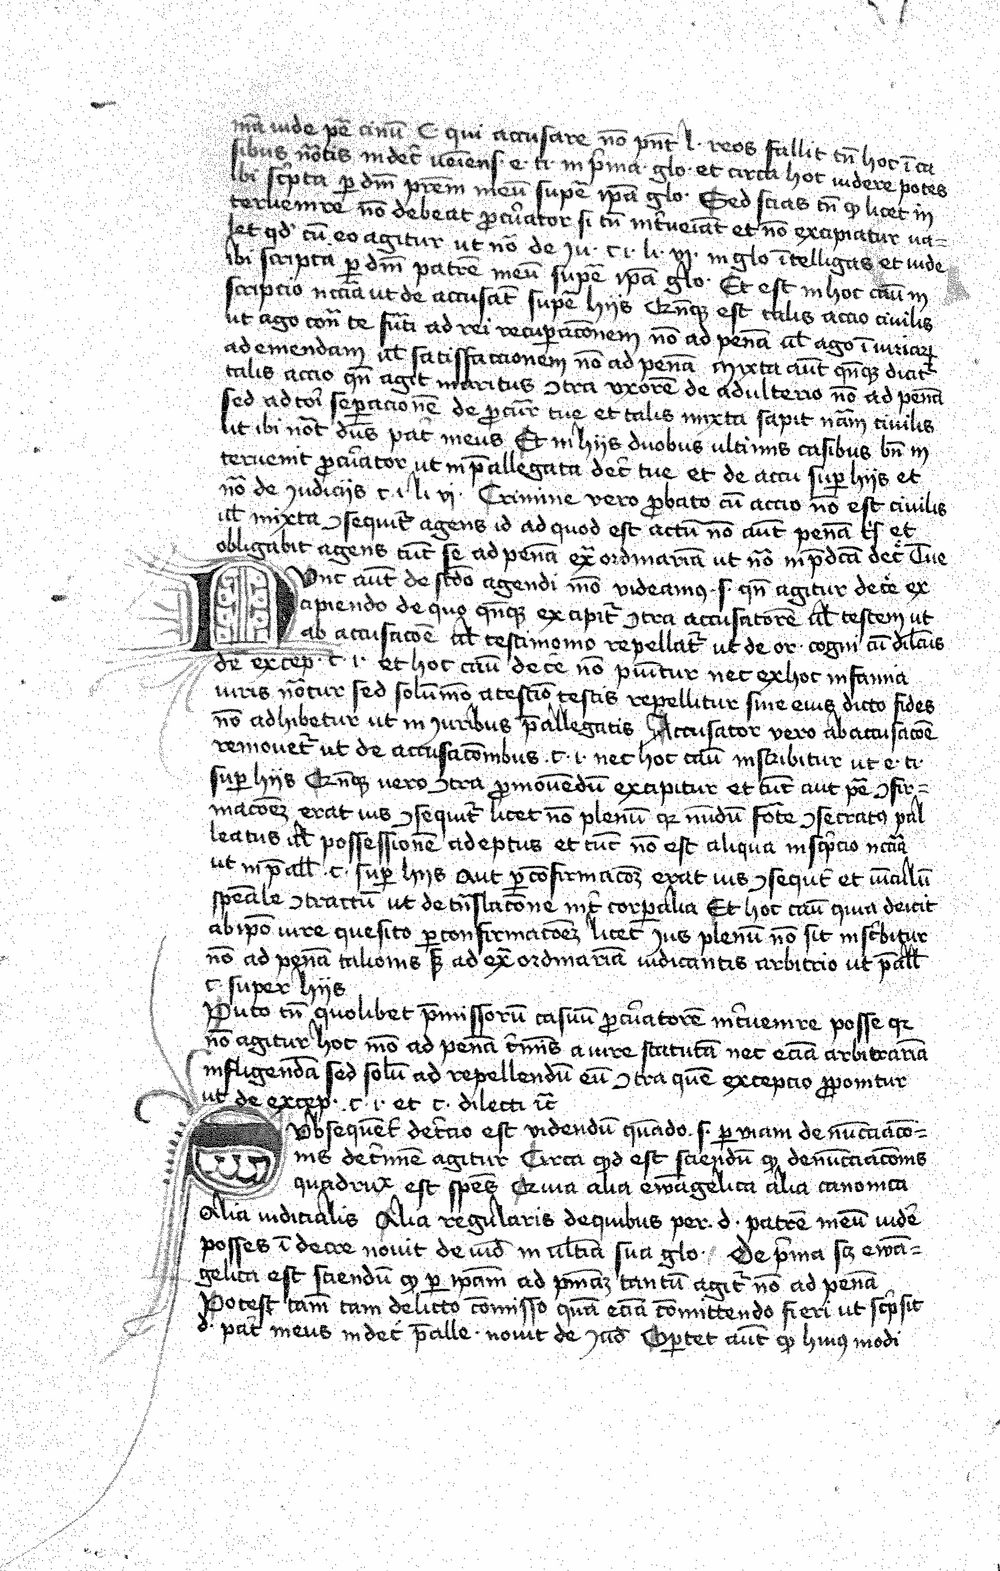 mā vide pē cinū C qui accusare nō pn̄t l. reos fallit tn̄ hoc ī ca
sibus nōtis in decr̄ veīens. e. ti. in p̄ma glo. et circa hoc videre potes
ibi sc̄pta p dm̄ prēm meū supē ip̄a glo. Sed scias tn̄ qp licet in
tervenire nō debeat pcūator si tn̄ int̄veīat et nō excipiatur va=
let qd' cū eo agitur ut nō de iu. c. i. li. vj. in glo ītelligas et vide
ibi scripta p dm̄ patrē meū supē ip̄a glo. Et est in hoc cāu in
scripcio nccīa ut de accusat̄ supē hijs Qn̄q; est talis accio civilis
ut ago con̄ te fūti ad rei recupacōnem nō ad penā ul̄ ago ī iuriarz
ad emendam ul̄ satisfaccionem nō ad penā Mixta aūt qn̄q; dicit̄
talis accio qn̄ agit maritus ɔtra vxorē de adulterio nō ad penā
sed ad tori sepacionē de pcur̄ tue et talis mixta sapit nām civilis
ut ibi nōt dūs pat̄ meus Et in hijs duobus ultimis casibus bn̄ in
tervenit pcūator ut in p̄allegata decr̄ tue et de accu sup hijs et
nō de Judicijs c. i. li vj. Crimine vero pbato cū accio nō est civilis
ul̄ mixta ɔsequit̄ agens id ad quod est actū nō aūt penā et
obligabit agens tūc se ad penā ex̄ ordinariā ut nō in p̄dcā decr̄ Tue
Nunc aūt de scdo agendi mō videam9 .s. qn̄ agitur decē ex
capiendo de quo qn̄q; excipit̄ ɔtra accusatorē ul̄ testem ut
ab accusacōe ul̄ testimonio repellat̄ ut de or. cogni cū dilcūs
de excep. c. i. et hoc cāu decē nō puītur nec ex hoc infamia
iuris nōtur sed solūmō a testiō testis repellitur sine eius dicto fides
nō adhibetur ut in Juribus p̄allegatis Accusator vero ab accusacōe
removet̄ ut de accusacōnibus .c. i. nec hoc cāu inscribitur ut e. ti.
sup hijs Qn̄q; vero ɔtra pmovendū excipitur et tūc aut pē ɔfir=
macōez erat ius ɔsequit̄ licet nō plenū qr nūdū fōte ɔsecrat9 pal
leatus ul̄ possessionē adeptus et tūc nō est aliqua inscpcio nccīa
ut in p̄all .c. sup hijs Aut p confirmacōez erat ius ɔsequt̄ et vīcllū
spēale ɔtractū ut de tn̄slacōne int̄ corpalia Et hoc cāu quia deicit
ab ipō iure quesito p confirmacōez licet Jus plenū nō sit inscr̄bitur
nō ad penā talionis s; ad ex̄ ordinariā iudicantis arbitrio ut p̄all
c. super hijs
Puto tn̄ quolibet p̄missorū casuū pcūatorē int̄venire posse qr
nō agitur hoc mō ad penā t̄mīs a iure statutā nec eciā arbitrariā
infligendā sed solū ad repellendū eū ɔtra quē excepcio pponitur
ut de excep. c. i. et c. dilecti ic̄
Subsequēt̄ det̄cio est videndū quādo .s. p viam denūcciacō=
nis de c̄mīne agitur Circa qd est sciendū qp denūcciacōnis
quadrux est spēs Quia alia ewāgelica alia canonica
Alia iudicialis Alia regularis de quibus per. d. patrē meū vidē
posses ī decre novit de iud̄ in ul̄tia sua glo. De p̄ma scz ewā=
gelica est sciendū qp p ip̄am ad pniaz tantū agit̄ nō ad penā
Potest tam̄ tam delicto cōmisso quā eciā cōmittendo fieri ut scpsit
d. pat̄ meus in decr̄ p̄alle. novit de Jud̄ Oportet aūt qp hui9modi